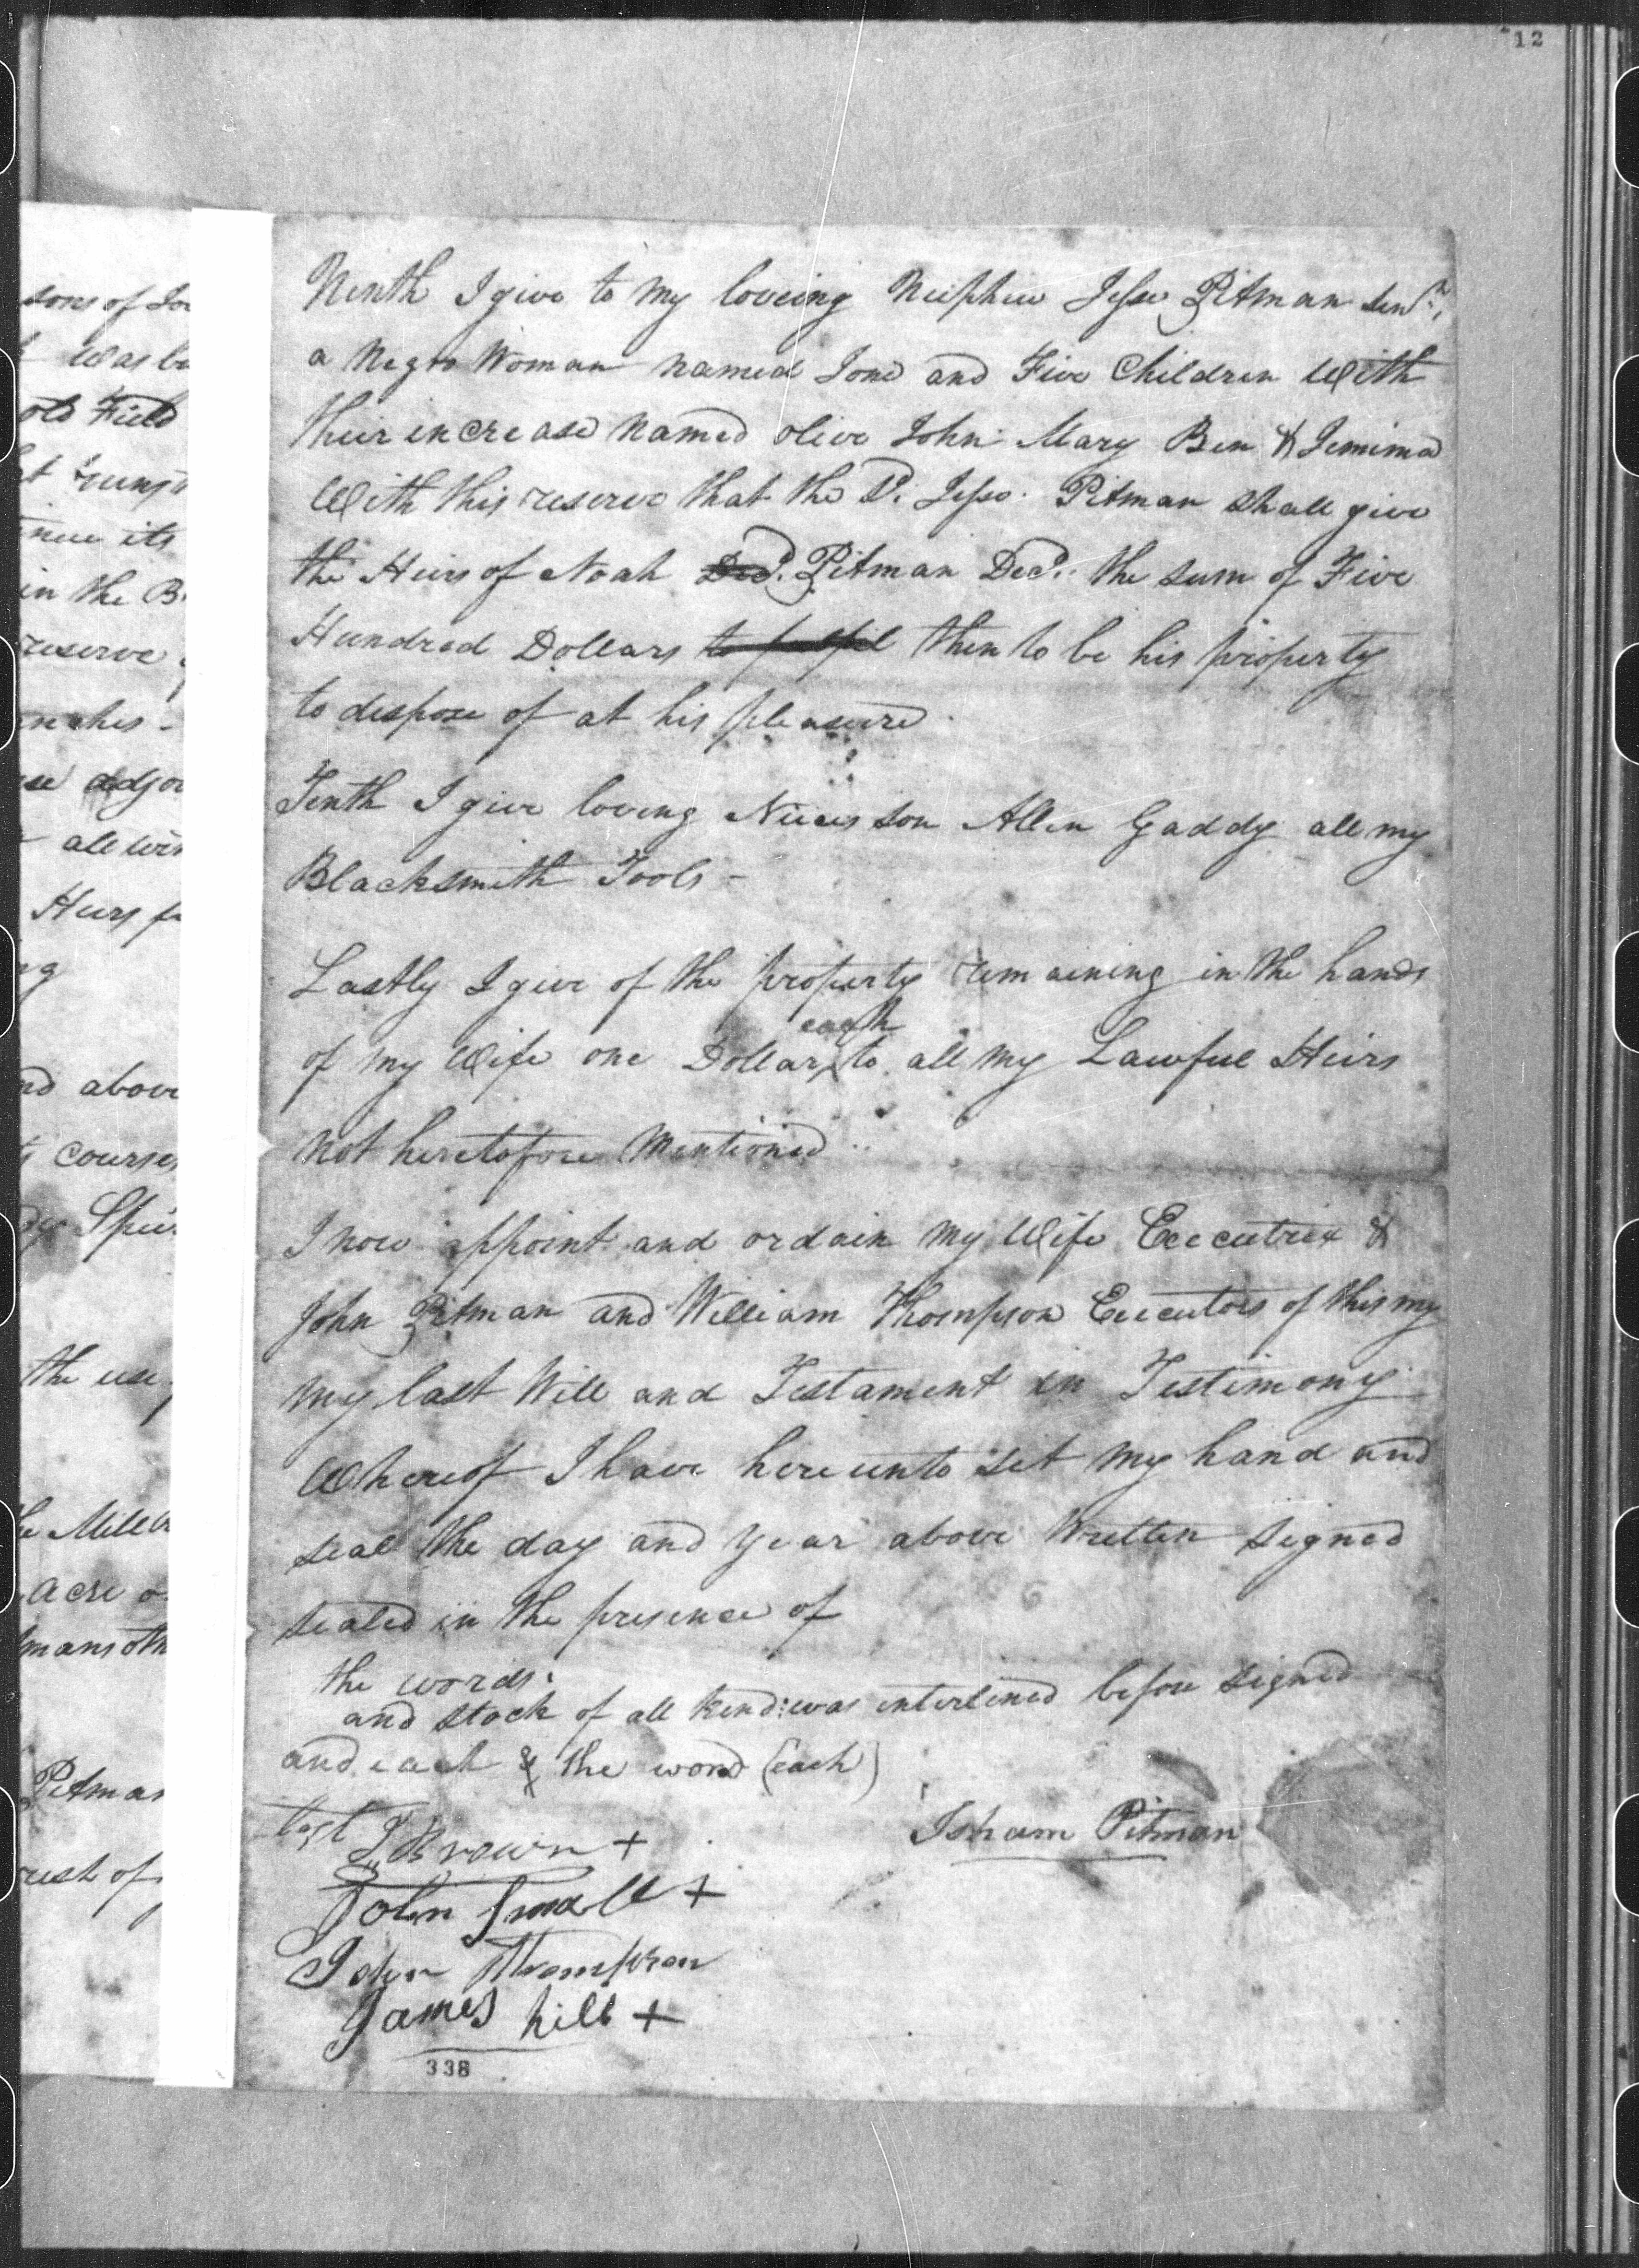 12
sons of
was
old Field
nue its
in the
reserve
adjo
all
Heirs
above
courses
the use
the Mill
acre
Pitman
of
Ninth I give to My loveing Neiphew Jesse Pitman Senr.
a Negro Woman named Jone and Five Children With
their increase Named Olive John Mary Ben & Jemima
With this reserve that the Sd. Jesse Pitman Shall give
the Heirs of Noah Decd. Pitman Decd. the Sum of Five
Hundred Dollars to fulfil then to be his property
to dispose of at his pleasure
Tenth I give loving Nieces Son Allen Gaddy all my
Blacksmith Tools -
Lastly I give of the property remaining in the hands
each
of my Wife one Dollar to all my Lawful Heirs
Not heretofore Mentioned
I now appoint and ordain My Wife Executrix &
John Pitman and William Thompson Executors of this my
My last Will and Testament in Testimony
Whereof I have here unto Set My hand and
Seal the day and year above Written Signed
Sealed in the presence of
the words:
and Stock of all kind: was interlined before Signed
and each & the word (each)
test J. Brown +
Isham Pitman
John Small +
John Thompson
James hill +
338